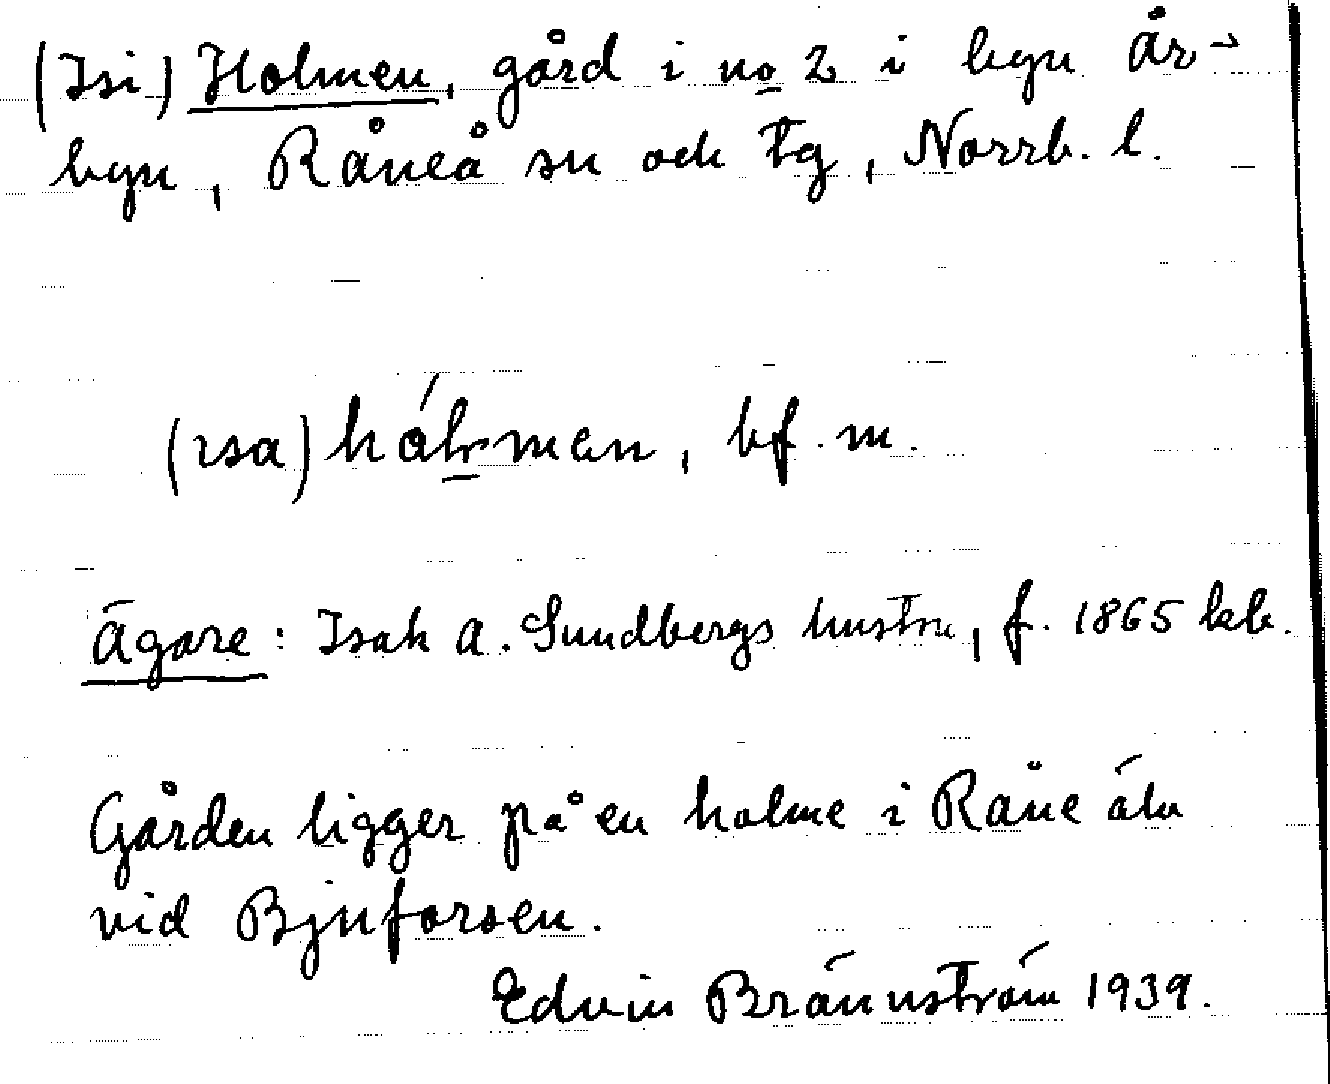 (Isi) Holmen, gård i no 2 i byn År-
byn, Råneå sn och tg, Norrb. l.
(ɪsa) hólmen, bf. m.
Ägare: Isak A. Sundbergs hustru, f. 1865 kb.
Gården ligger på en holme i Råne älv
vid Bjnforsen.
Edvin Brännström 1939.